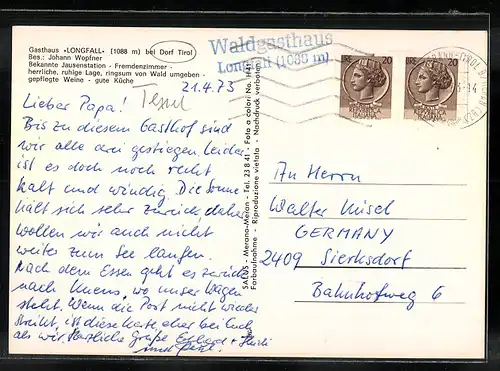 Gasthaus »LONGFALL« (1088 m) bei Dorf Tirol
Bes.: Johann Wopfner
Bekannte Jausenstation - Fremdenzimmer -
herrliche, ruhige Lage, ringsum von Wald umgeben -
gepflegte Weine - gute Küche
Waldgasthaus
Longfall (1088 m)
LIRE 20
LIRE 20
21.4.73
Lieber Papa!
Bis zu diesem Gasthof sind
wir alle drei gestiegen. Leider
ist es doch noch recht
kalt und windig. Die Sonne
hält sich sehr zurück, daher
wollen wir auch nicht
weiter zum See laufen.
Nach dem Essen geht es zurück
nach Kuens, wo unser Wagen
steht. Wenn die Post nicht wieder
streikt, ist diese Karte eher bei Euch
als wir. Herzliche Grüße
SALUS - Merano-Meran - Tel. 23 8 41 - Foto a colori No. H/41
Farbaufnahme - Riproduzione vietata - Nachdruck verboten
An Herrn
Walter
GERMANY
2409 Sierksdorf
Bahnhofweg 6